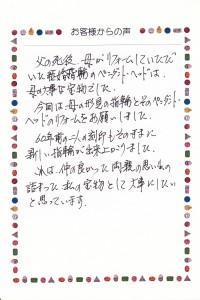 お客様からの声
父の死後、母がリフォームしていただ
いた結婚指輪のペンダントヘッドは、
母の大事な宝物でした。
今回は、母の形見の指輪とそのペンダント
ヘッドのリフォームをお願いしました。
60年前の二人の刻印もそのままに
新しい指輪が出来上がりました。
これは、仲の良かった両親の思い出の
詰まった私の宝物として大事にしたい
と思っています。